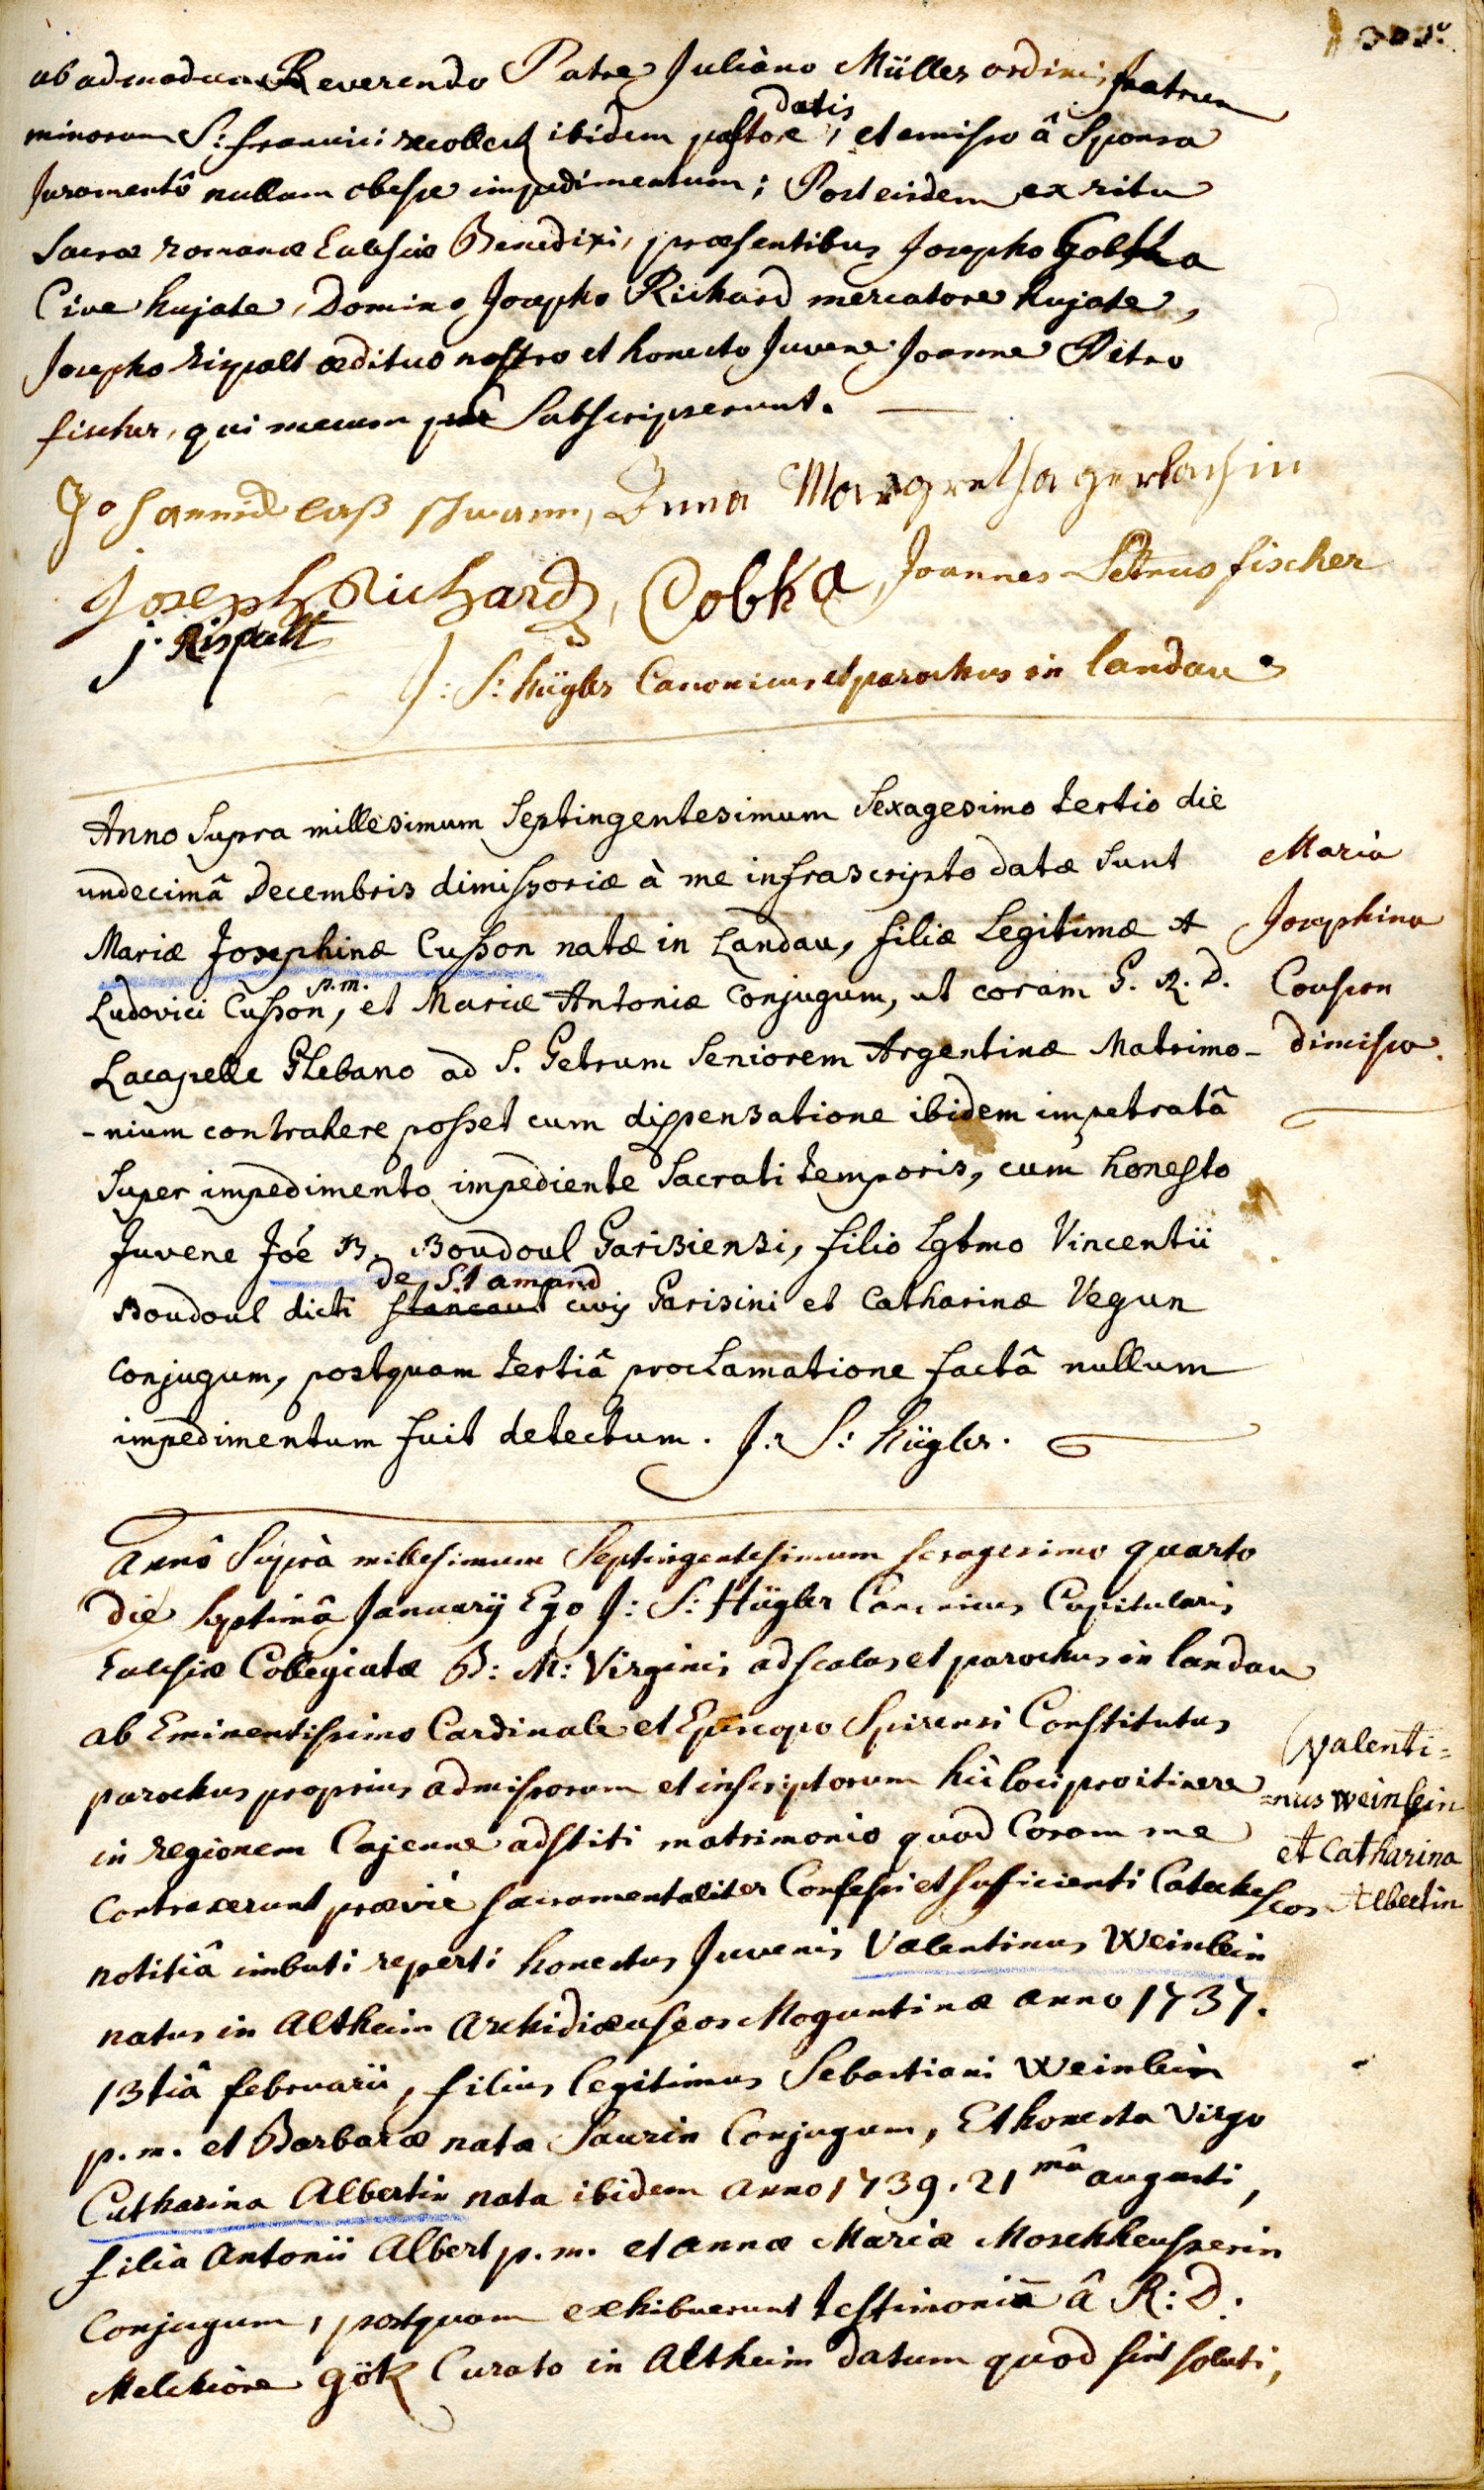 ab admodum Reverendo Patre Juliano Müller ordinis fratrum
minorum S: francisci recollect ibidem pastore datis, et emisso â Sponsa
Juramentô nullum obesse impedimentum; Post eisdem ex ritu
Sacræ romanæ Ecclesiæ Benedixi, præsentibus Josepho Gobka
Cive hujate, Domino Josepho Richard mercatore hujate,
Josepho Rispalt ædituo nostro et honesto Juvene Joanne Petro
fischer, qui mecum Subscripserunt.
Anna Margretha gerlachin
Joseph Richard, Cobka, Joannes Petrus fischer
j. Rispalt
J: S: Hügler Canonicus et parochus in landau
Anno Supra millesimum Septingentesimum Sexagesimo tertio die
undecimâ Decembris dimissoriæ à me infrascripto datæ sunt
Mariæ Josephinæ Cusson natæ in Landau, filiæ Legitimæ
Ludovici Cusson p.m., et Mariæ Antoniæ Conjugum, ut coram P. R. D.
Lacapelle Plebano ad S. Petrum Seniorem Argentinæ Matrimo-
-nium contrahere posset cum dispensatione ibidem impetratâ
Super impedimento impediente Sacrati temporis, cum honesto
Juvene Jöe B. Boudoul Parisiensi, filio Lgtmo Vincentii
Boudoul dicti de St amand civis Parisini et Catharinæ Vegun
Conjugum, postquam tertiâ proclamatione factâ nullum
impedimentum fuit detectum. J: S: Hügler.
Maria
Josephina
Cousson
dimissa.
Annô Suprà millesimum Septingentesimum sexagesimo quarto
Die septimâ Januarij Ego J: S: Hügler Canonicus Capitularis
Ecclesiæ Collegiatæ B: M: Virginis ad scalas et parochus in landau
ab Eminentissimo Cardinale et Episcopo Spirensi Constitutus
parochus proprius admissorum et inscriptorum hìc loci pro itinere
in regionem Cajenne adstiti matrimonio quod Coram me
Contraxerunt prævie sacramentaliter Confessi et sufficienti Catecheseos
notitiâ imbuti reperti honestus Juvenis Valentinus Weinlein
natus in Altheim Archidiœceseos Moguntinæ anno 1737.
13tiâ februarii, filius legitimus Sebastiani Weinlein
p. m. et Barbaræ nata Saurin Conjugum, Et honesta Virgo
Catharina Albertin nata ibidem anno 1739. 21mâ augusti,
filia Antonii Albert p. m. et annæ Mariæ Moschheusserin
Conjugum, postquam exhibuerunt testimoniū â R: D:
Melchiore Gök Curato in Altheim datum quod sint soluti,
Valenti=
=nus weinlein
et Catharina
Albertin